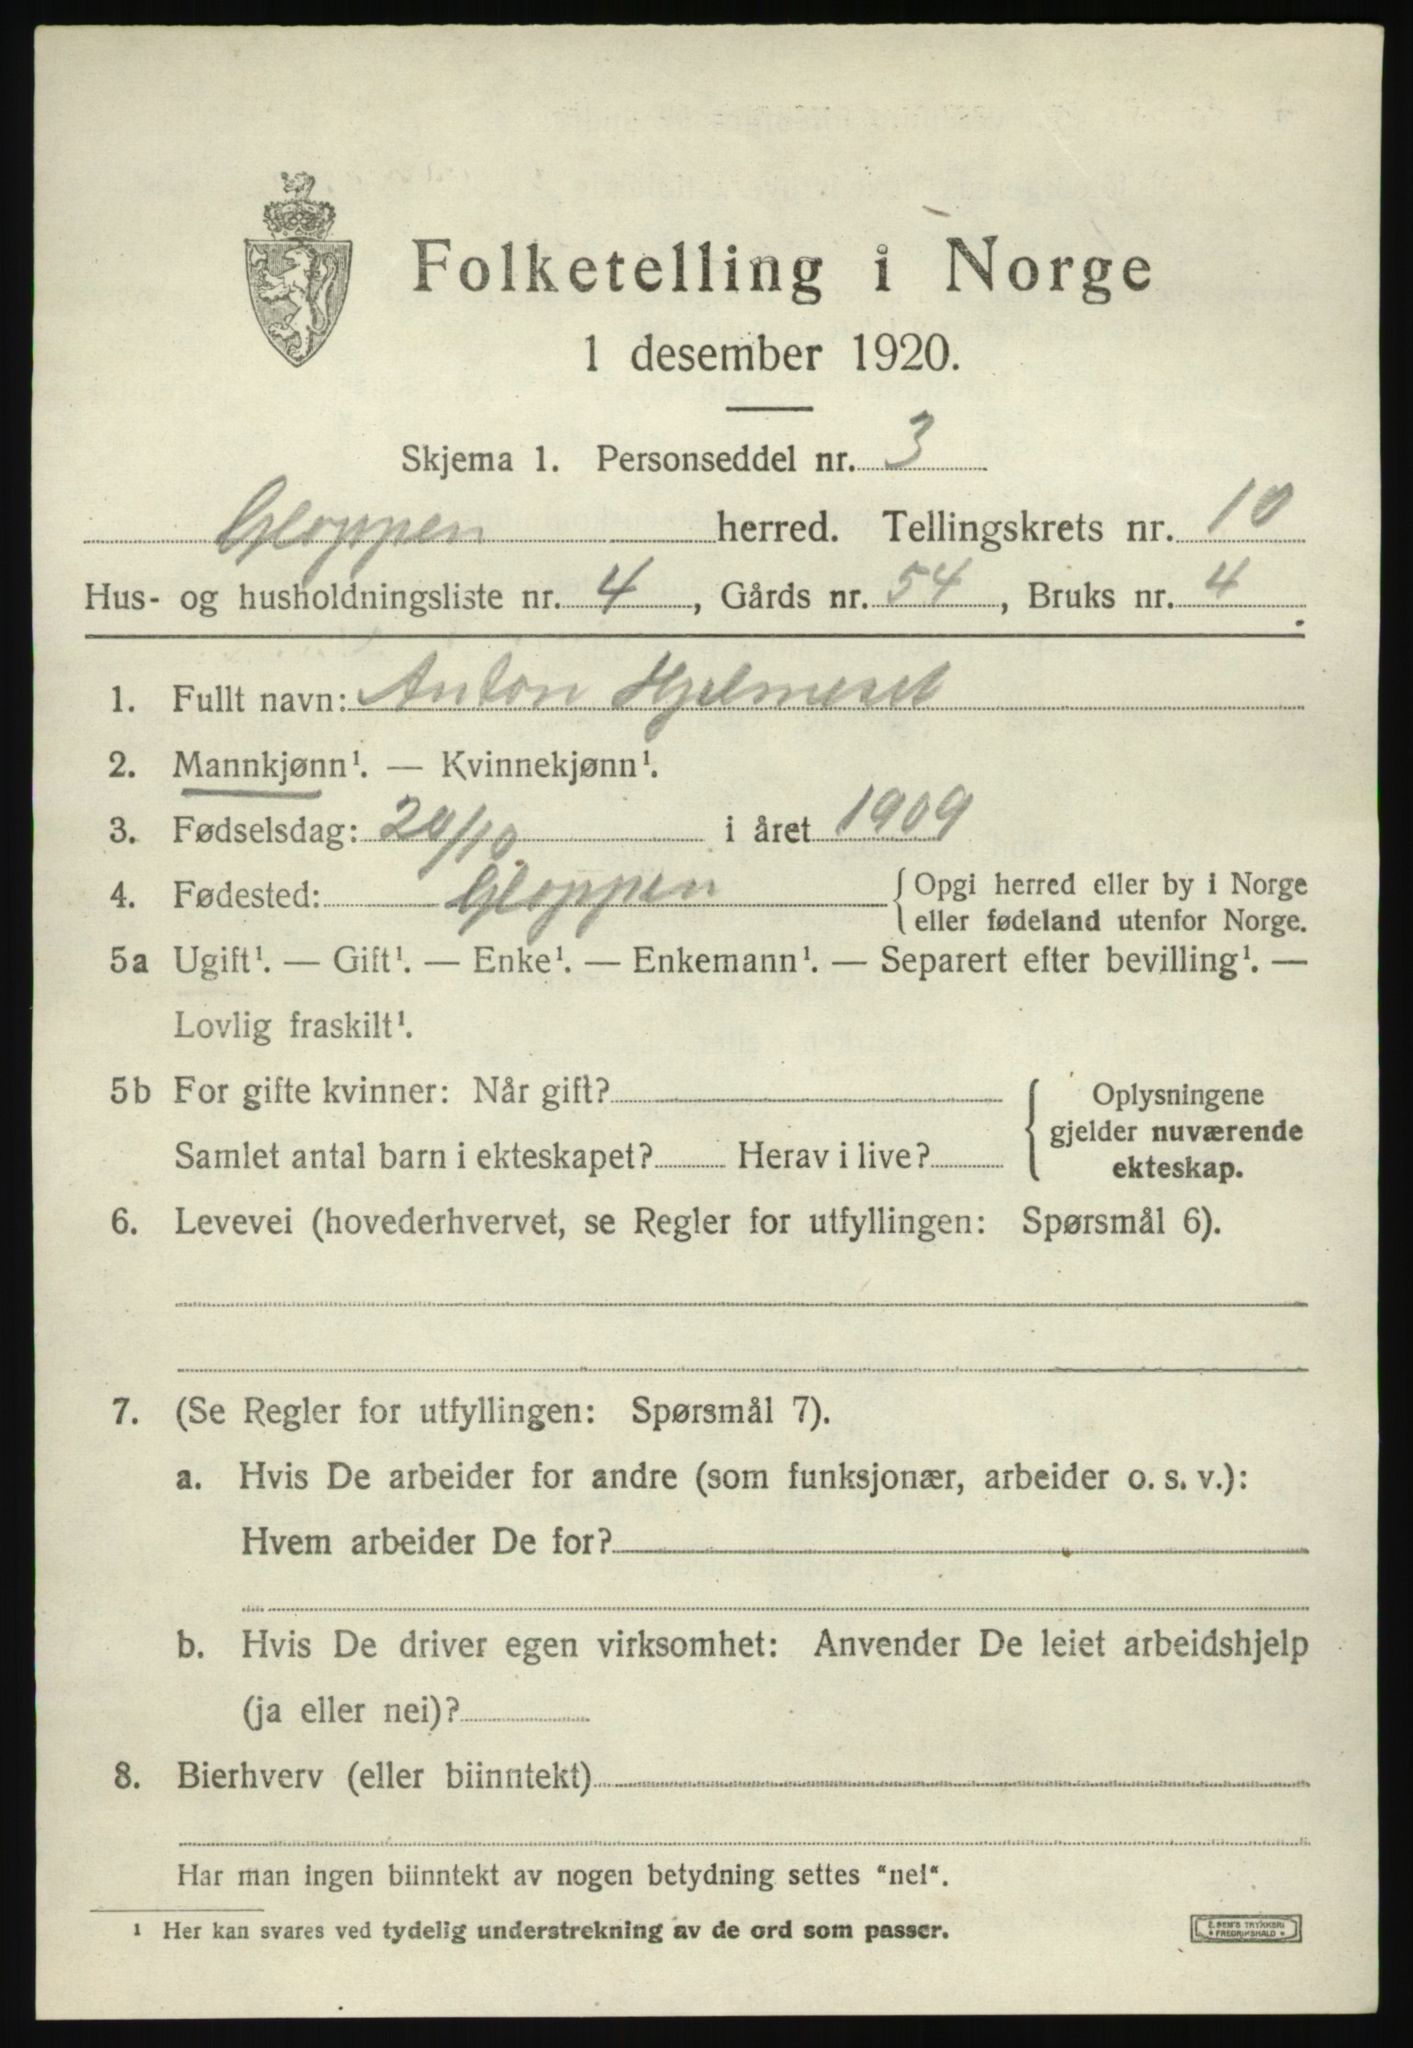 Folketelling i Norge
1 desember 1920.
Skjema 1. Personseddel nr. 3
Gloppen herred. Tellingskrets nr. 10
Hus- og husholdningsliste nr. 4, Gårds nr. 54, Bruks nr. 4
1. Fullt navn: Anton Hjelmeset
2. Mannkjønn¹. — Kvinnekjønn¹.
3. Fødselsdag: 20/10 i året 1909
4. Fødested: Gloppen { Opgi herred eller by i Norge
eller fødeland utenfor Norge.
5a Ugift¹. — Gift¹. — Enke¹. — Enkemann¹. — Separert efter bevilling¹. —
Lovlig fraskilt¹.
5b For gifte kvinner: Når gift?
Samlet antal barn i ekteskapet? Herav i live?
Oplysningene
gjelder nuværende
ekteskap.
6. Levevei (hovederhvervet, se Regler for utfyllingen: Spørsmål 6).
7. (Se Regler for utfyllingen: Spørsmål 7).
a. Hvis De arbeider for andre (som funksjonær, arbeider o. s. v.):
Hvem arbeider De for?
b. Hvis De driver egen virksomhet: Anvender De leiet arbeidshjelp
(ja eller nei)?
8. Bierhverv (eller biinntekt)
Har man ingen biinntekt av nogen betydning settes "nei".
¹ Her kan svares ved tydelig understrekning av de ord som passer.
E. SEM'S TRYKKERI
* FREDRIKSHALD *